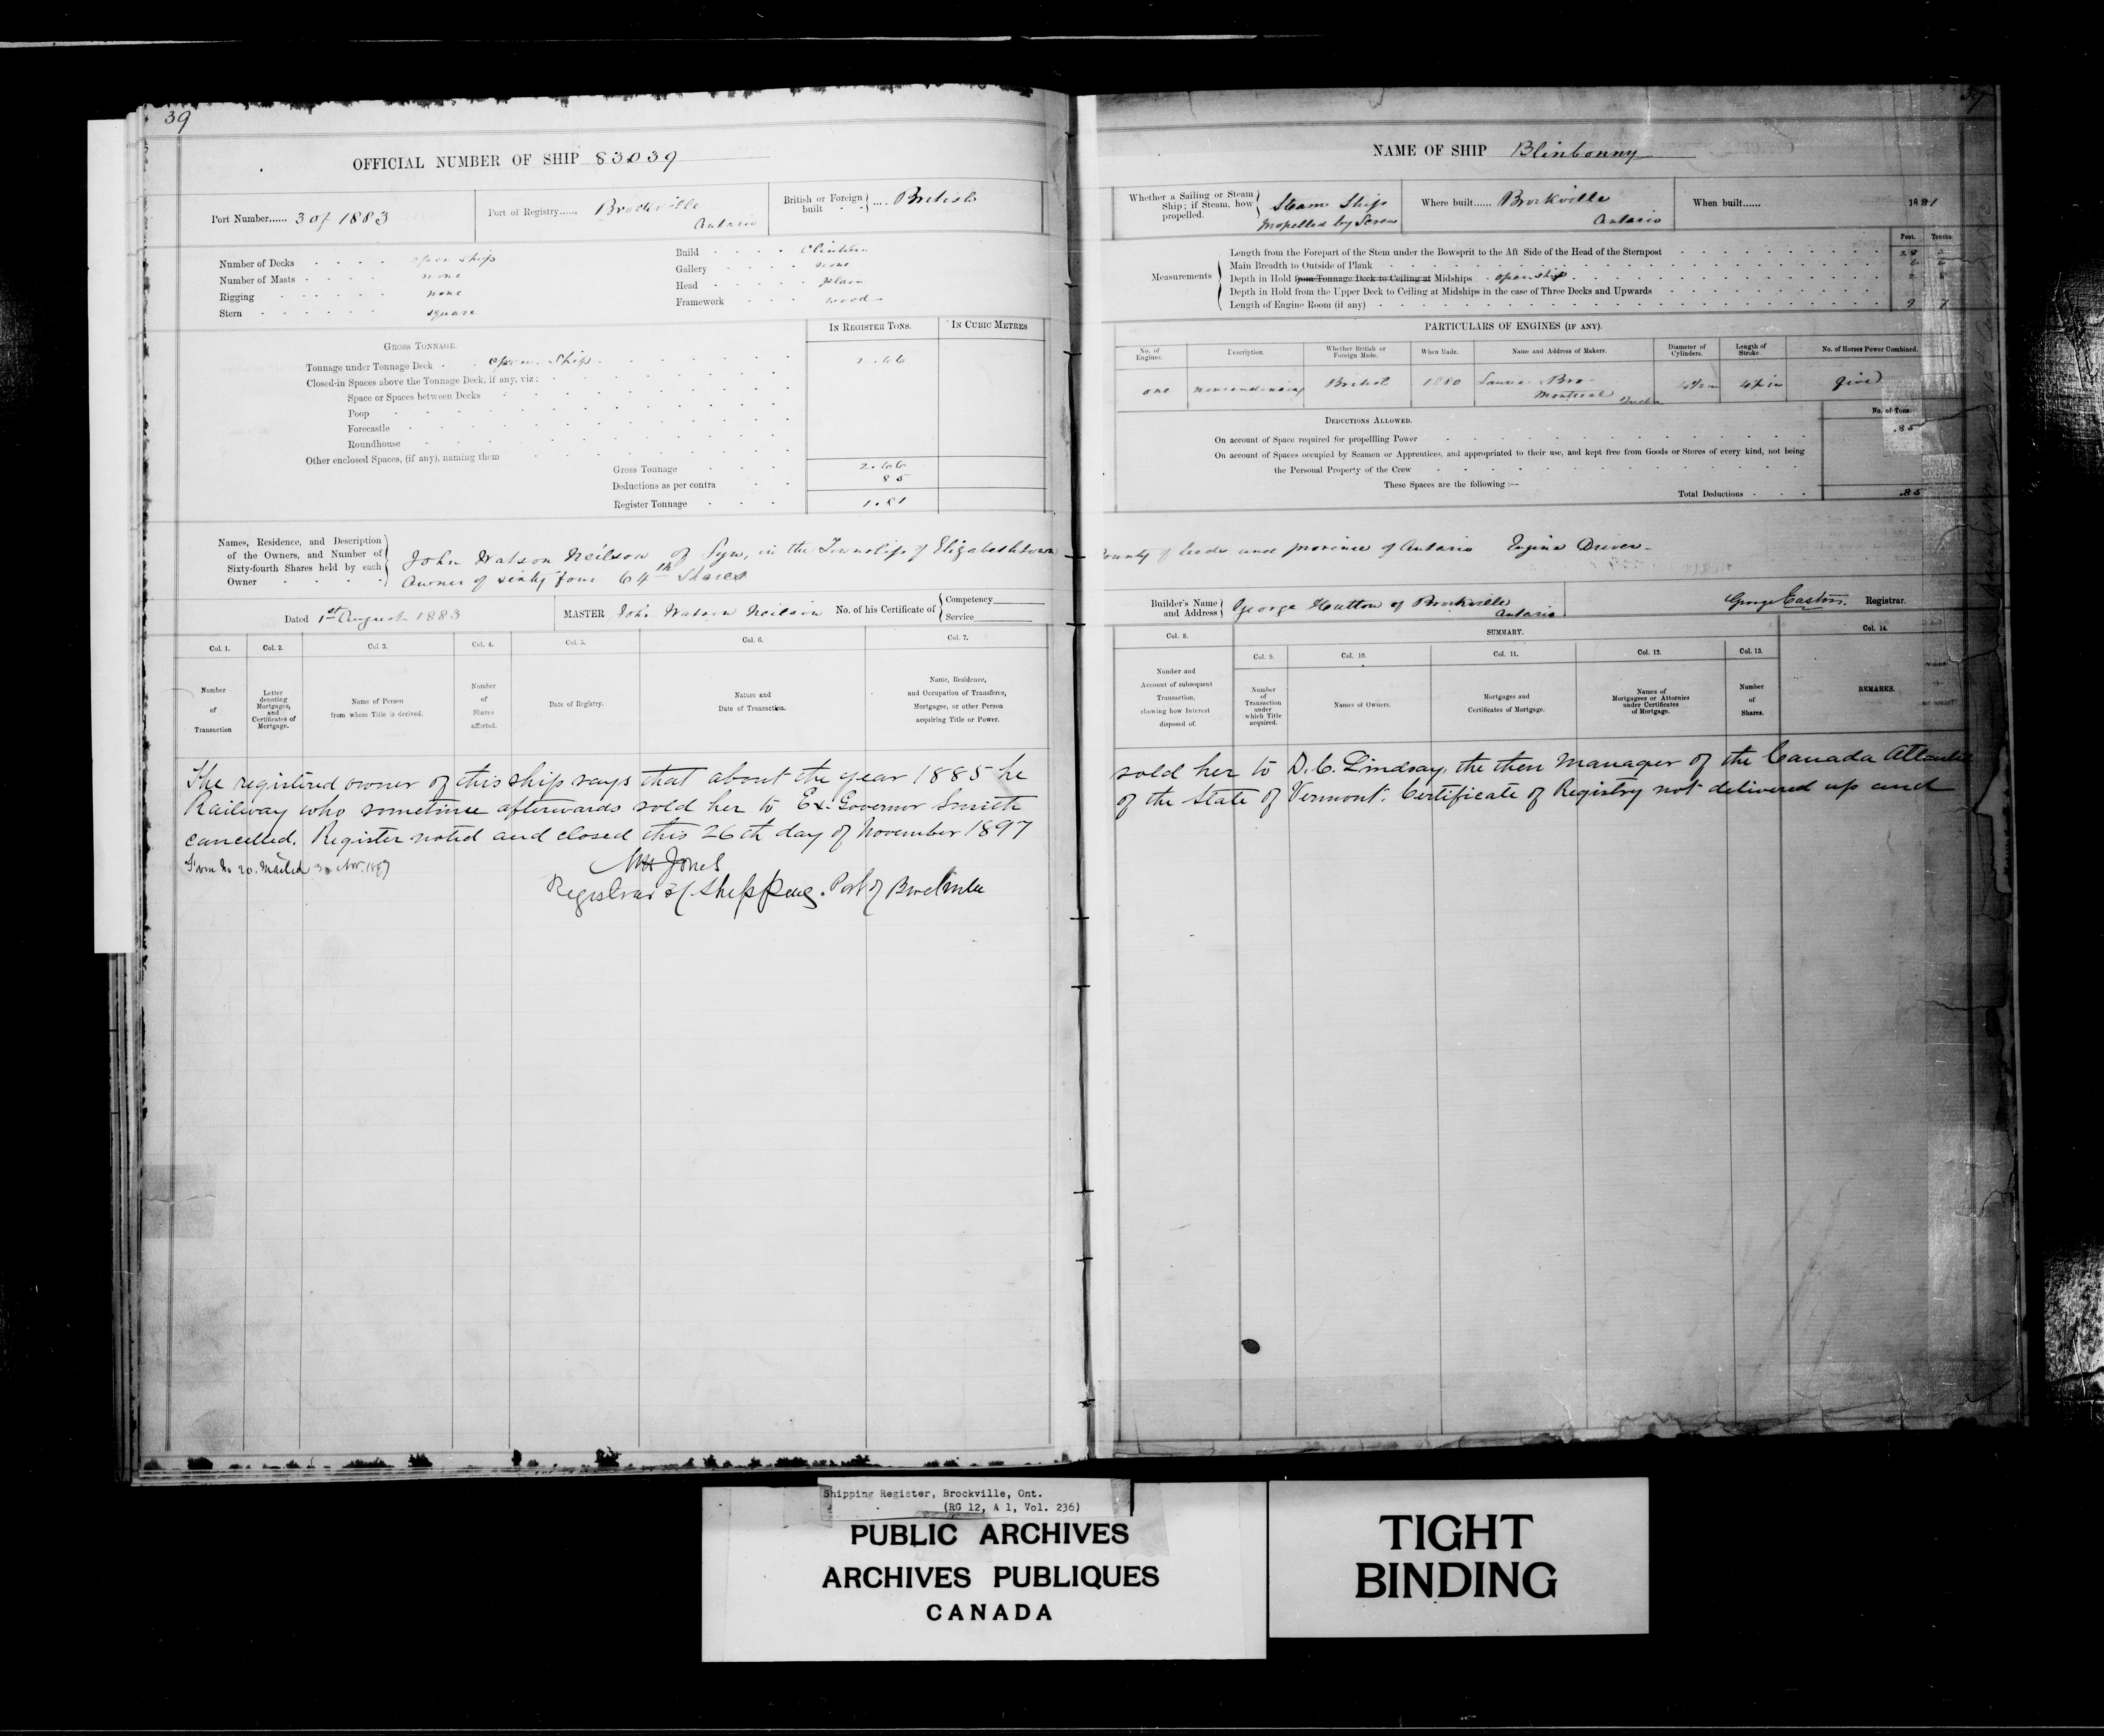 39
OFFICIAL NUMBER OF SHIP 83039
Port Number...... 3 of 1883
Port of Registry...... Brockville Ontario
British or Foreign built .... British
Number of Decks open ship
Number of Masts none
Rigging none
Stern square
Build Clinker
Gallery none
Head plain
Framework wood
GROSS TONNAGE.
IN REGISTER TONS.
IN CUBIC METRES
Tonnage under Tonnage Deck open ship 2.66
Closed-in Spaces above the Tonnage Deck, if any, viz:
Space or Spaces between Decks
Poop
Forecastle
Roundhouse
Other enclosed Spaces, (if any), naming them
Gross Tonnage 2.66
Deductions as per contra 85
Register Tonnage 1.81
Names, Residence, and Description
of the Owners, and Number of
Sixty-fourth Shares held by each
Owner
John Watson Neilson of Lyn, in the Township of Elizabethtown
Owner of sixty four 64th Shares
Dated 1st August 1883
MASTER John Watson Neilson No. of his Certificate of Competency
Service
Col. 1.
Col. 2.
Col 3.
Col. 4.
Col. 5.
Col. 6.
Col. 7.
Number
of
Transaction
Letter
denoting
Mortgages,
and
Certificates of
Mortgage.
Name of Person
from whom Title is derived.
Number
of
Shares
affected.
Date of Registry.
Nature and
Date of Transaction.
Name, Residence,
and Occupation of Transferee,
Mortgagee, or other Person
acquiring Title or Power.
The registered owner of this ship says that about the year 1885 he
Railway who sometime afterwards sold her to Ex-Governor Smith
cancelled. Register noted and closed this 26th day of November 1897
Form No 20. Mailed 30 Nov. 1897
Jones
Registrar of Shipping. Port of Brockville
39
NAME OF SHIP Blinbonny
Whether a Sailing or Steam
Ship; if Steam, how
propelled.
Steam Ship
propelled by Screw
Where built...... Brockville
Ontario
When built...... 1881
Feet. Tenths.
Measurements
Length from the Forepart of the Stem under the Bowsprit to the Aft Side of the Head of the Sternpost 28
Main Breadth to Outside of Plank 6 6
Depth in Hold from Tonnage Deck to Ceiling at Midships open ship 2 8
Depth in Hold from the Upper Deck to Ceiling at Midships in the case of Three Decks and Upwards
Length of Engine Room (if any) 9 7
PARTICULARS OF ENGINES (IF ANY).
No. of
Engines.
Description.
Whether British or
Foreign Made.
When Made.
Name and Address of Makers.
Diameter of
Cylinders.
Length of
Stroke.
No. of Horses Power Combined.
one
noncondensing
British
1880
Bro
Montreal Quebec
4½ in
4½ in
five
DEDUCTIONS ALLOWED.
No. of Tons.
On account of Space required for propelling Power .85
On account of Spaces occupied by Seamen or Apprentices, and appropriated to their use, and kept free from Goods or Stores of every kind, not being
the Personal Property of the Crew
These Spaces are the following :—
Total Deductions .85
County of Leeds and province of Ontario Engine Driver
Builder's Name
and Address
George Hutton of Brockville
Ontario
George Easton. Registrar.
Col. 8.
SUMMARY.
Col. 14.
Col. 9.
Col. 10.
Col. 11.
Col. 12.
Col. 13.
Number and
Account of subsequent
Transaction,
showing how Interest
disposed of.
Number
of
Transaction
under
which Title
acquired.
Names of Owners.
Mortgages and
Certificates of Mortgage.
Names of
Mortgagees or Attornies
under Certificates
of Mortgage.
Number
of
Shares.
REMARKS.
sold her to D. C. Lindsay, the then Manager of the Canada Atlantic
of the State of Vermont. Certificate of Registry not delivered up and
Shipping Register, Brockville, Ont.
(RG 12, A 1, Vol. 236)
PUBLIC ARCHIVES
ARCHIVES PUBLIQUES
CANADA
TIGHT
BINDING